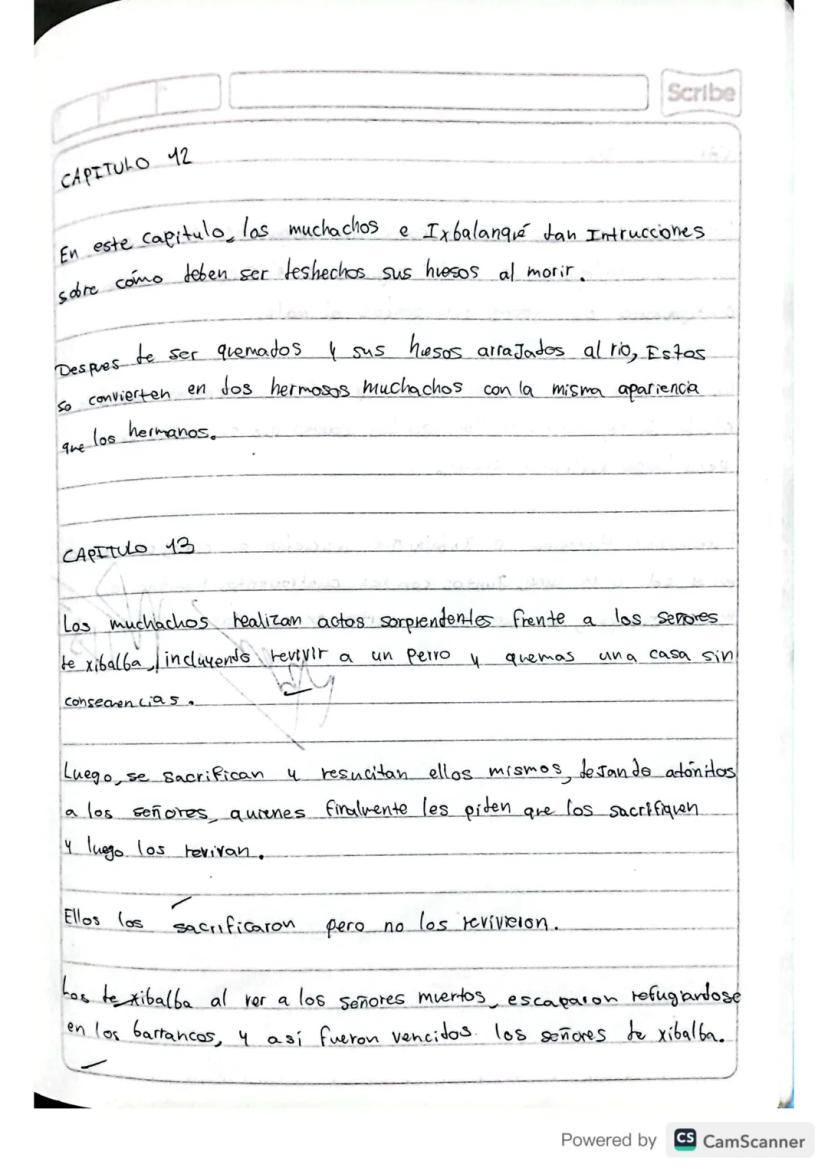 Scribe
CAPITULO 12
En este capitulo, los muchachos e Ixbalanqué dan Intrucciones
sobre cómo deben ser deshechos sus huesos al morir.
Despues de ser quemados y sus huesos arrajados al río, Estos
so convierten en dos hermosos muchachos con la misma apariencia
que los hermanos.
CAPITULO 13
Los muchachos realizan actos sorprendentes frente a los señores
de xibalba, incluyendo revivir a un perro y quemas una casa sin
consecuencias.
Luego, se sacrifican y resucitan ellos mismos, dejando atónitos
a los señores, quienes finalmente les piden que los sacrifiquen
y luego los revivan.
Ellos los sacrificaron pero no los revivieron.
Los de xibalba al ver a los señores muertos, escaparon refugiandose
en los barrancos, y así fueron vencidos los señores de xibalba.
Powered by CS CamScanner